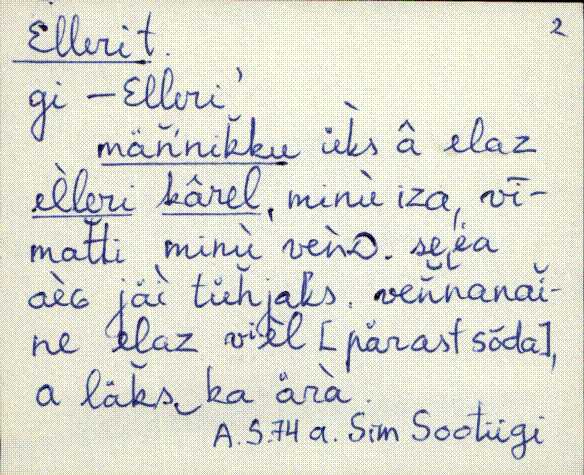 Ellerit. 2
gi – Elleri'
män̆'nik̆ku ǜks â elaz
ell̀eri kârel, minù iza, vī-
mat̆ti minù veǹD. se̬e̬a
aèG jäì tüh̆jaks. ven̆nanaĭ-
ne elaz viel̀ [pärast sõda],
a läk̆s‿ka ärà.
A.S. 74 a. Sim Sootiigi